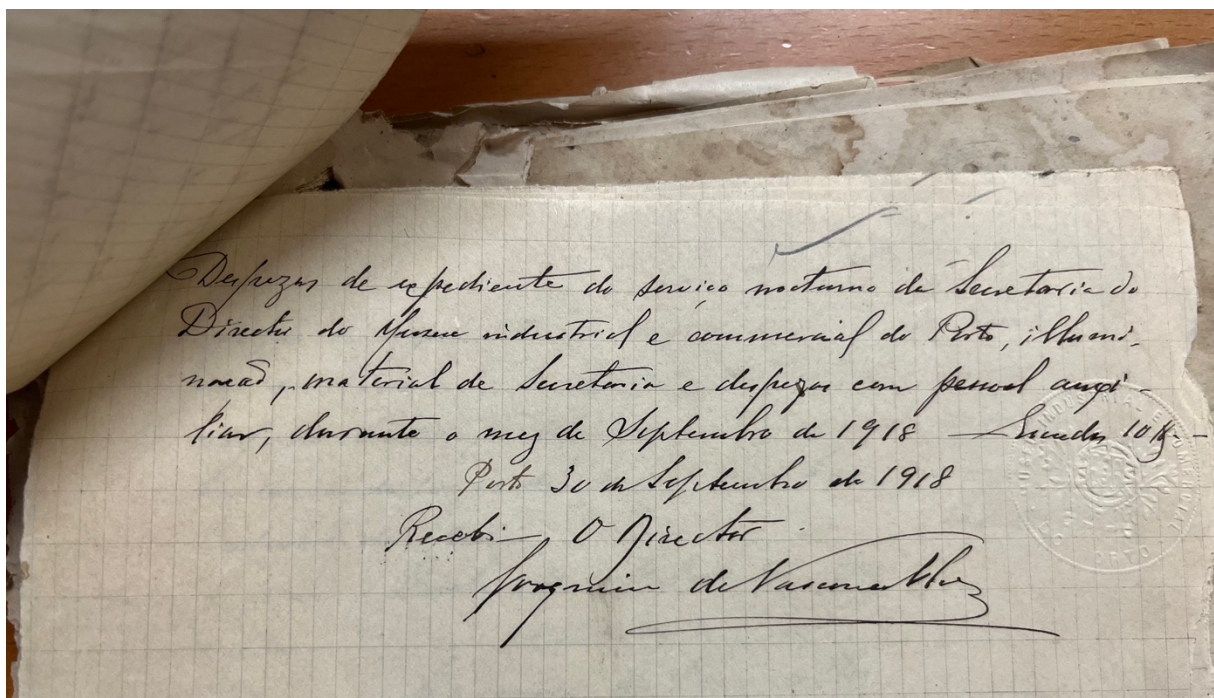 Despezas de expediente do serviço nocturno da Secretaria do
Director do Museu industrial e commercial do Porto, illumi-
nacaõ, material de Secretaria e despezas com pessoal auxi-
liar, durante o mez de Septembro de 1918 — Escudos 10$—
Porto 30 de Septembro de 1918
Recebi — O Director
Joaquim de Vasconcellos
INDUSTRIAL E COMMERCIAL DO PORTO